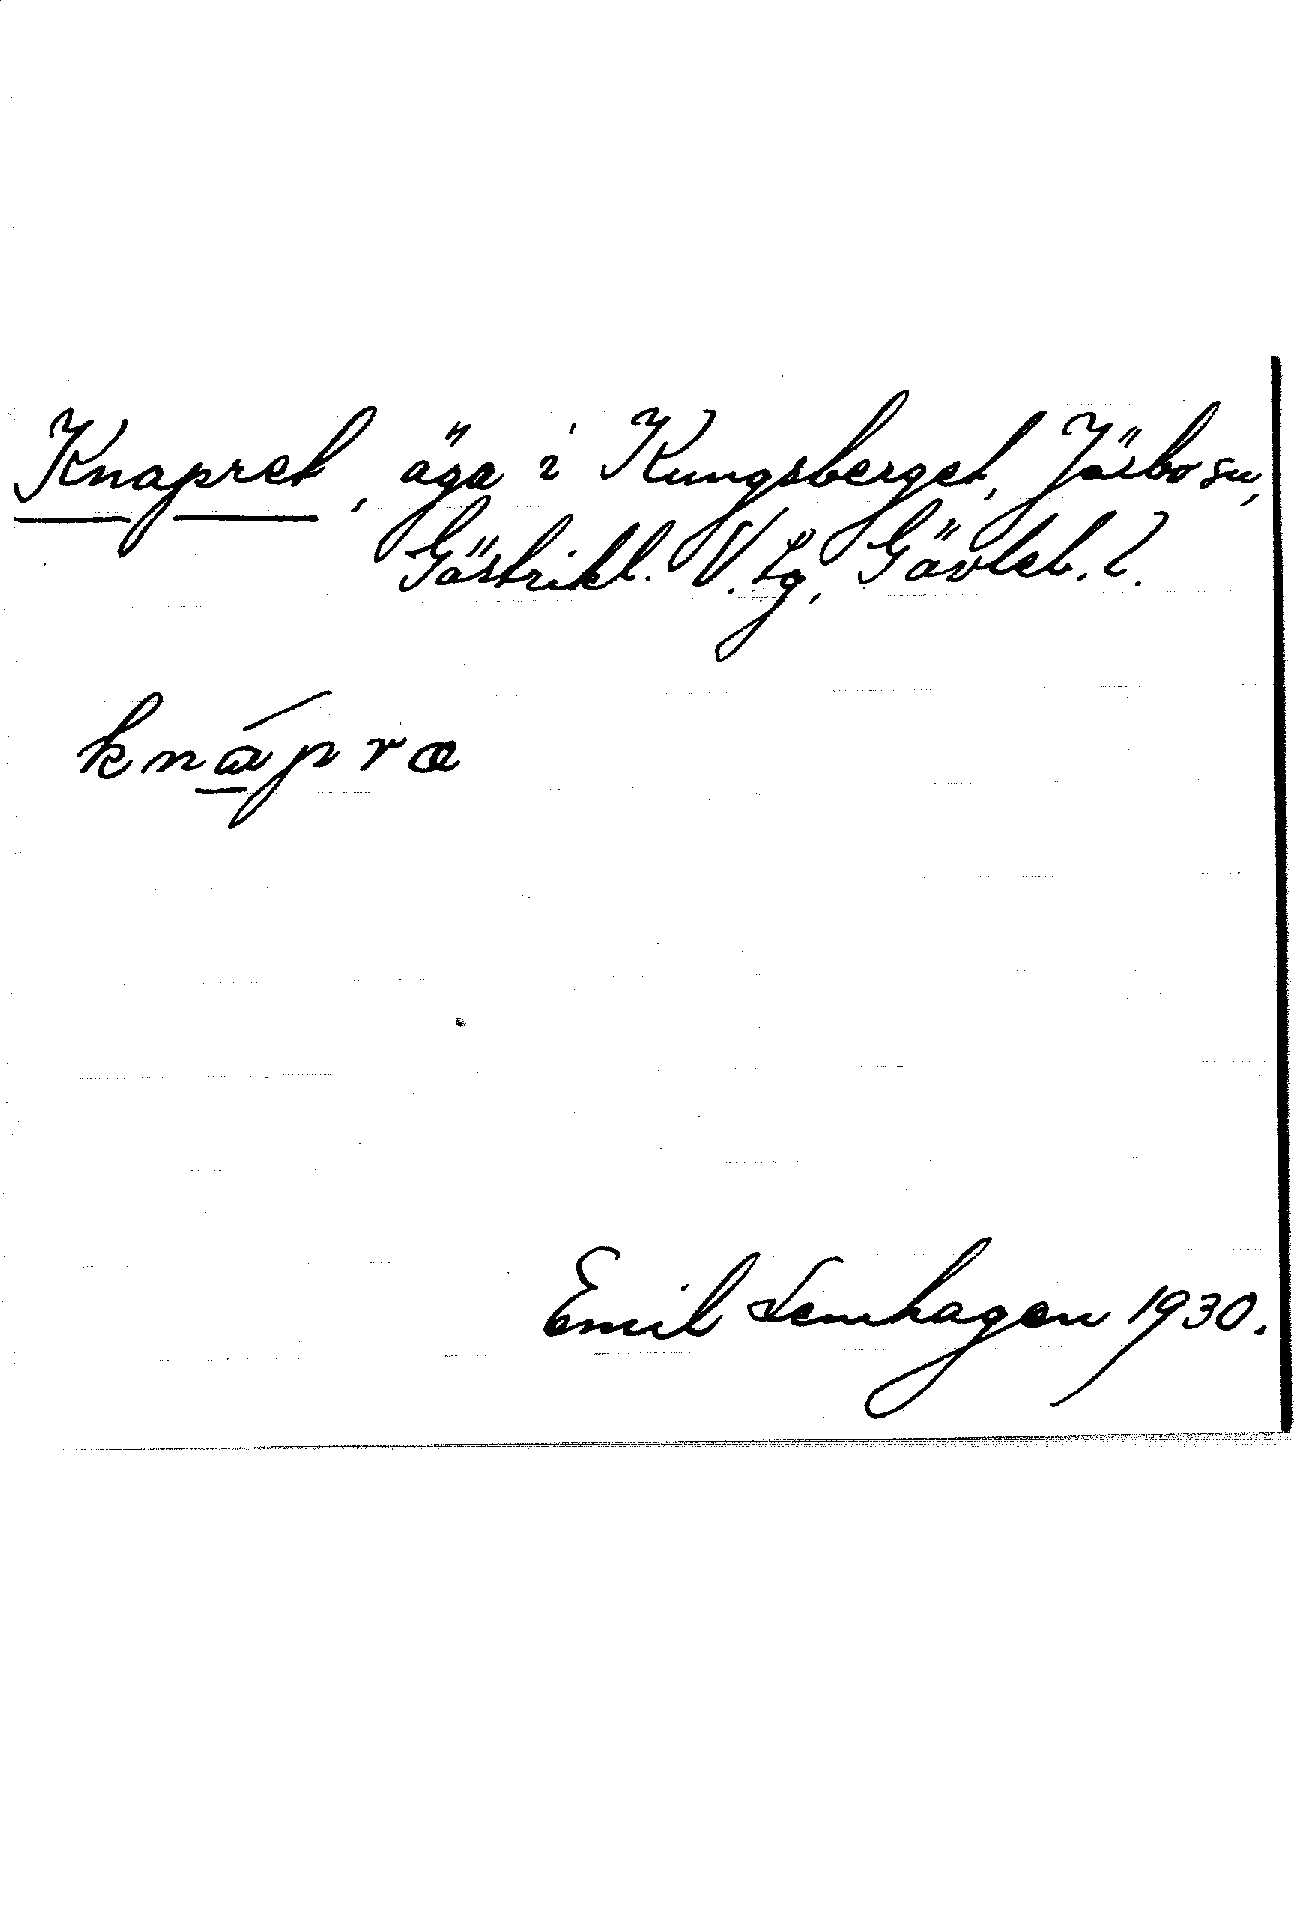 Knapret, äga i Kungsberget, Järbo sn,
Gästrikl. V. Lg, Gävleb. l.
knápræ
Emil Lemhagen 1930.